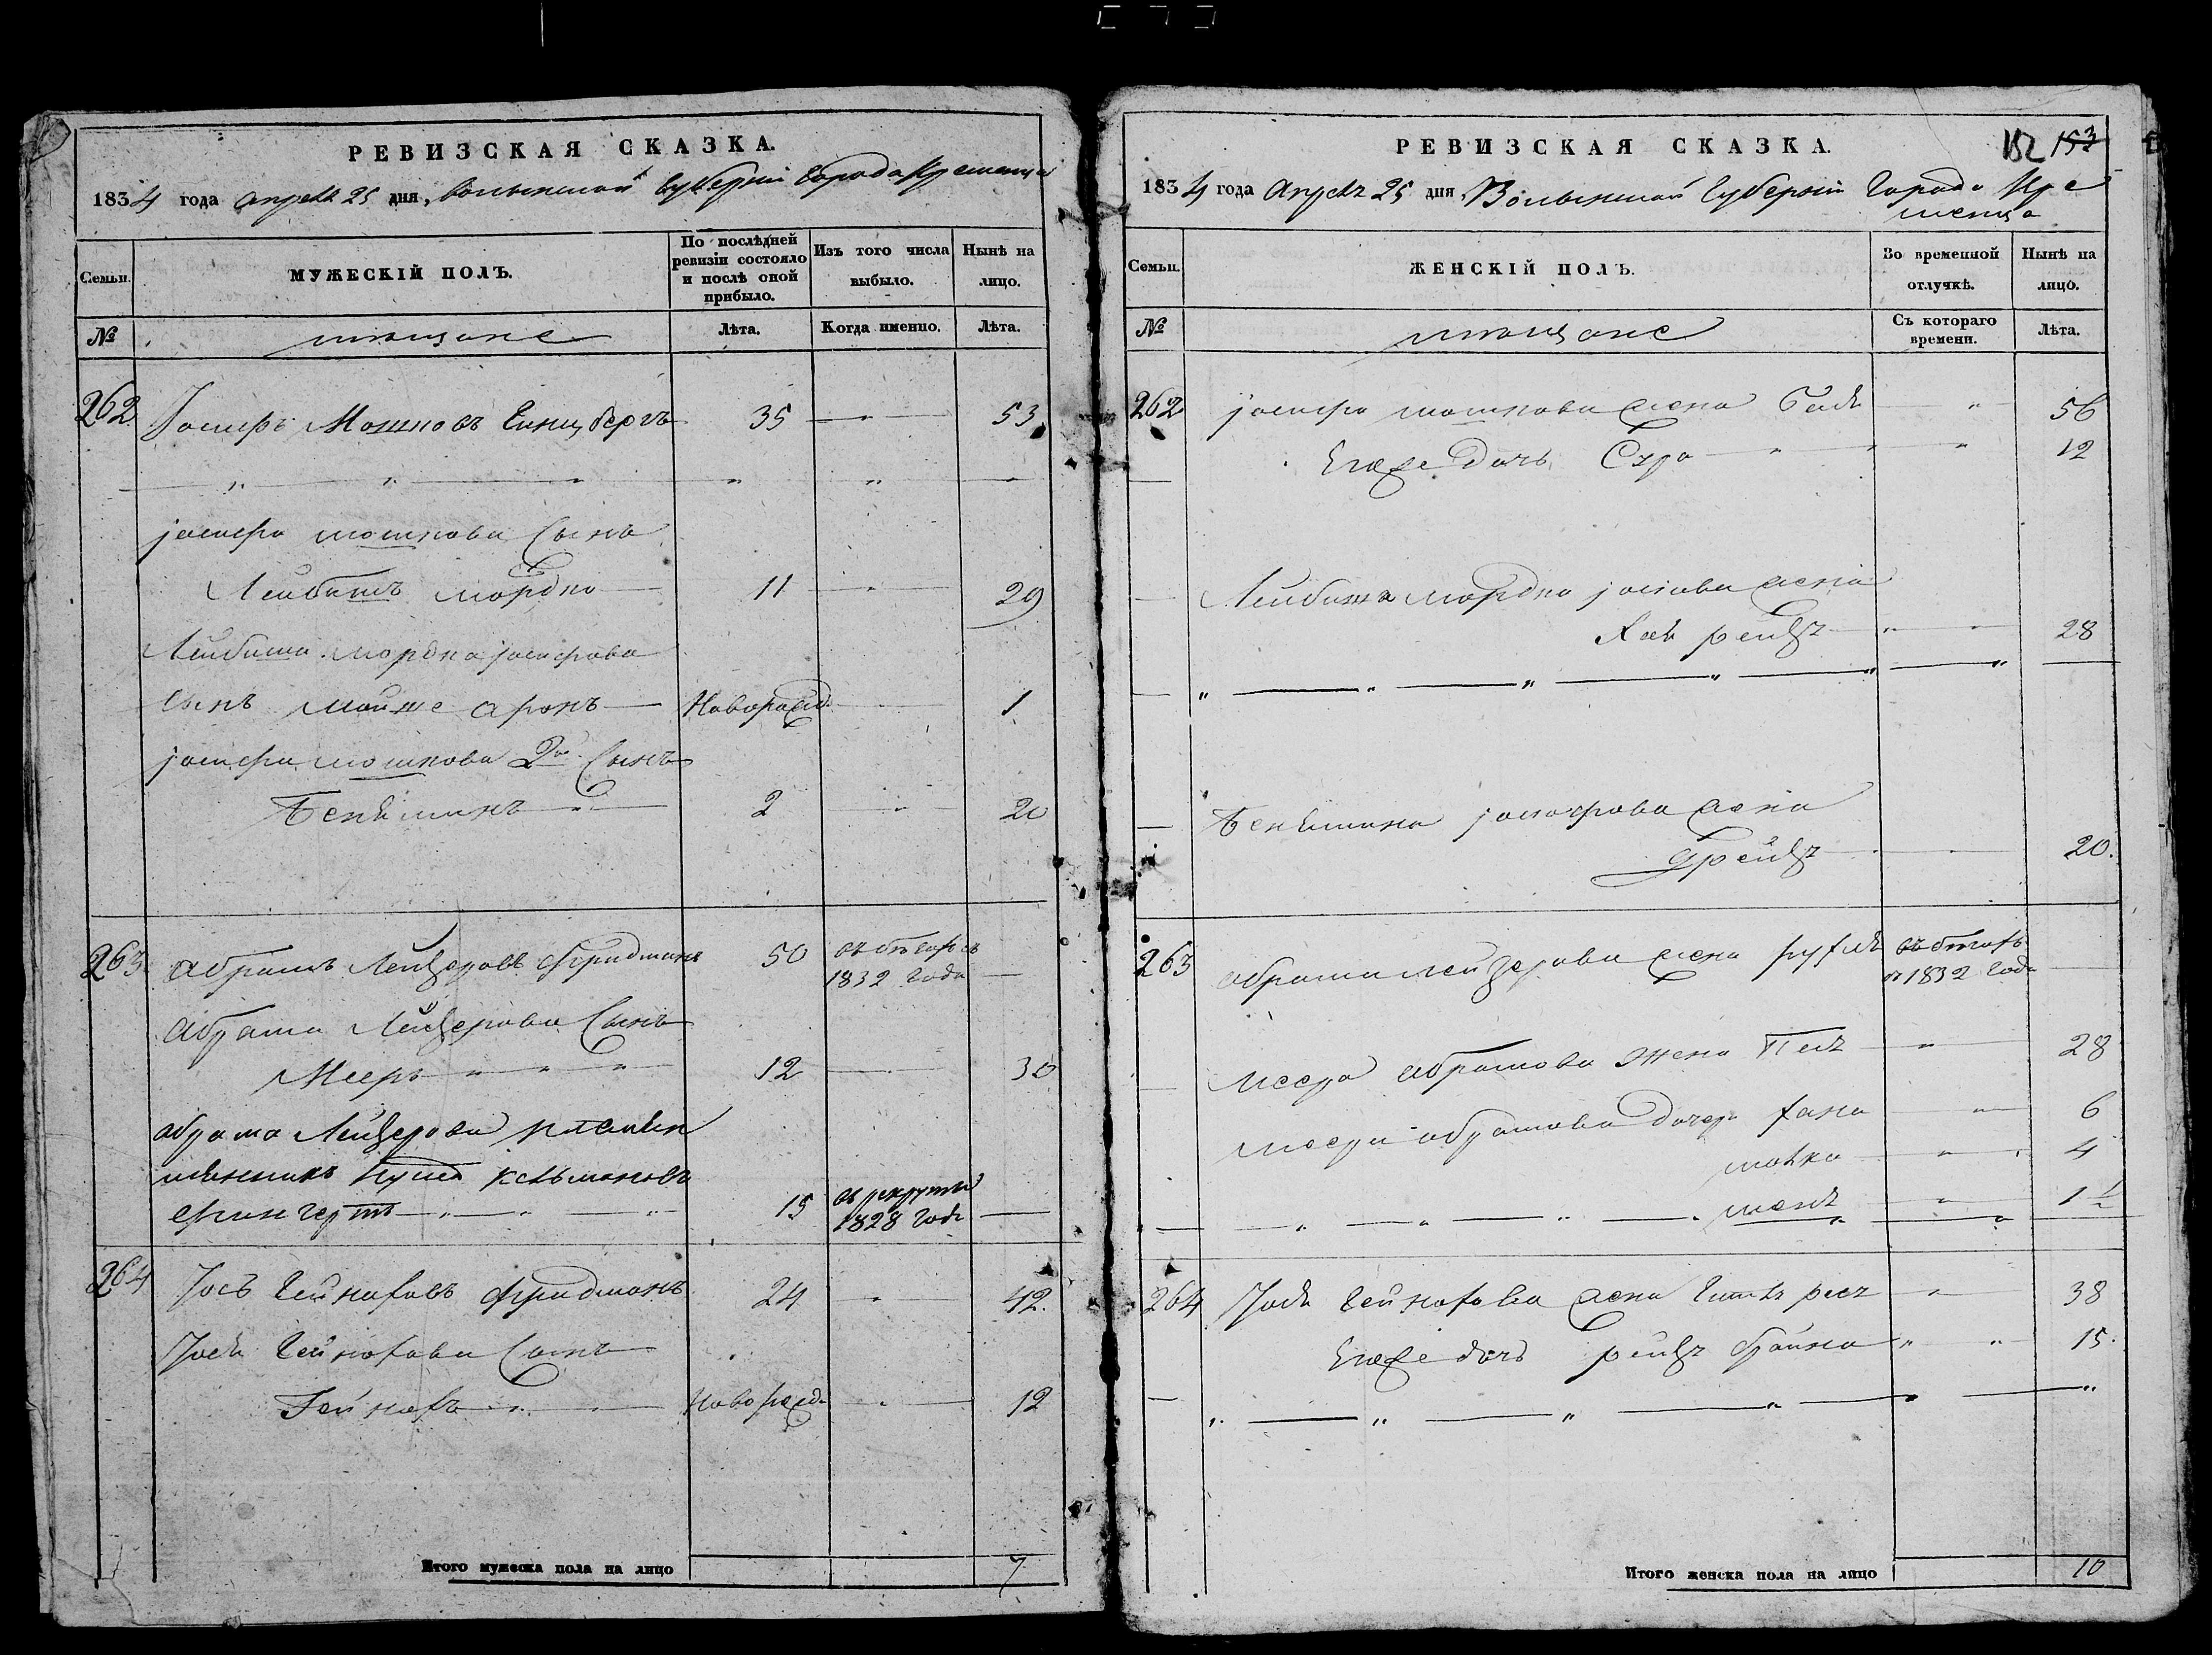 РЕВИЗСКАЯ СКАЗКА.
1834 года апреля 25 дня, Волынской Губернии Города Кременца
Семьи.
МУЖЕСКІЙ ПОЛЪ.
По послѣдней ревизіи состояло и послѣ оной прибыло.
Изъ того числа выбыло.
Нынѣ на лицо.
№
мещане
Лѣта.
Когда именно.
Лѣта.
262 Иосифъ Мошковъ Гинцбергъ 35 — " — 53
иосифа мошкова Сынъ
Лейбишъ мордко 11 — " — 29
Лейбиша мордка иосифова
сынъ мойше аронъ Новорожд. — 1
иосифа мошкова 2й Сынъ
Беніаминъ — " — 2 — " — 20
263 абрамъ Лейзеровъ фридманъ 50 въ бѣгахъ съ
1832 Года —
Абрама Лейзерова Сынъ
Мееръ " " " 12 — 30
абрама Лейзерова племян
15 въ рекруты
1828 Года —
264 Иось Гейнаховъ фридманъ 24 " 42.
Иося Гейнахова Сынъ
Гейнахъ — " — Новорожд. " 12
Итого мужеска пола на лицо 7
РЕВИЗСКАЯ СКАЗКА.
152 153
1834 года Апреля 25 дня Волынской Губернии Города Кре
менца
Семьи.
ЖЕНСКІЙ ПОЛЪ.
Во временной отлучкѣ.
Нынѣ на лицо.
№
мещане
Съ котораго времени.
Лѣта.
262 иосифа мошкова жена " 56
Егоже дочь Сура " " 12
Лейбиша мордка иосифова жена
Хая рейзя " " 28
Беніамина иосифова жена
фрейдя 20.
263 абрама лейзерова жена рухля въ бѣгахъ
съ 1832 Года
меера абрамова жена Песя " 28
меера абрамова дочери хана " 6
малка " 4
" 1½
264 Иося Гейнахова жена Гитля рася " 38
Егоже дочь рейзя файна " " 15.
Итого женска пола на лицо 10